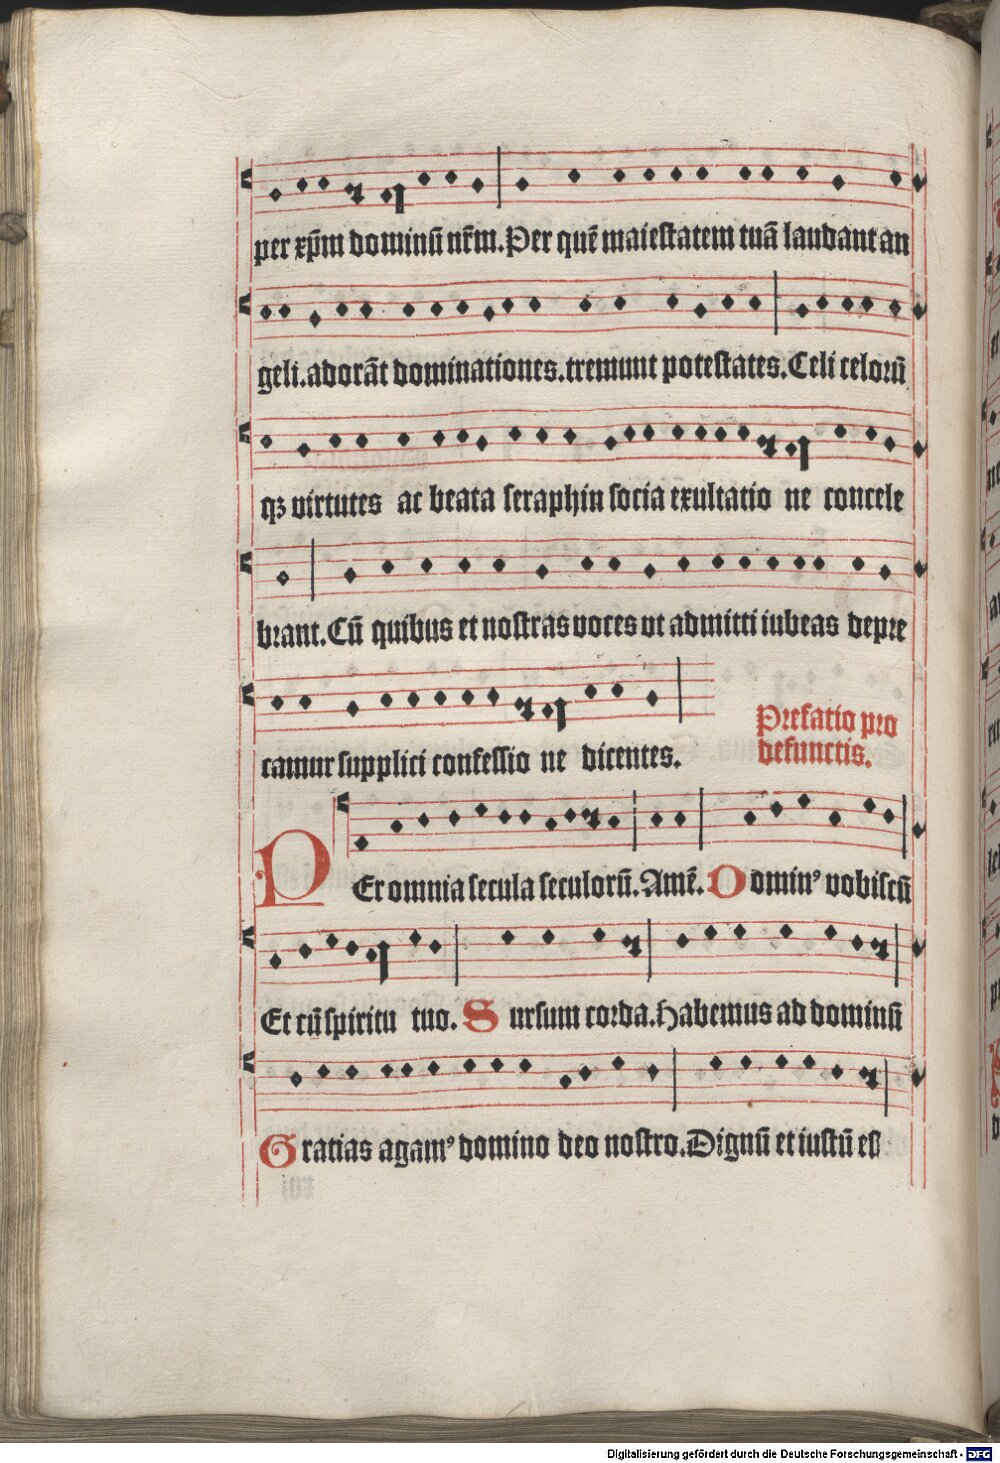 per xp̄m dominū nr̄m. Per quē maiestatem tuā laudant an
geli. adorāt dominationes. tremunt potestates. Celi celorū
qꝫ virtutes ac beata seraphin socia exultatio ne concele
brant. Cū quibus et nostras voces vt admitti iubeas depre
camur supplici confessio ne dicentes.
Prefatio pro
defunctis.
PEr omnia secula seculorū. Amē. Dominꝰ vobiscū
Et cū spiritu tuo. Sursum corda. Habemus ad dominū
Gratias agamꝰ domino deo nostro. Dignū et iustū est
Digitalisierung gefördert durch die Deutsche Forschungsgemeinschaft - DFG